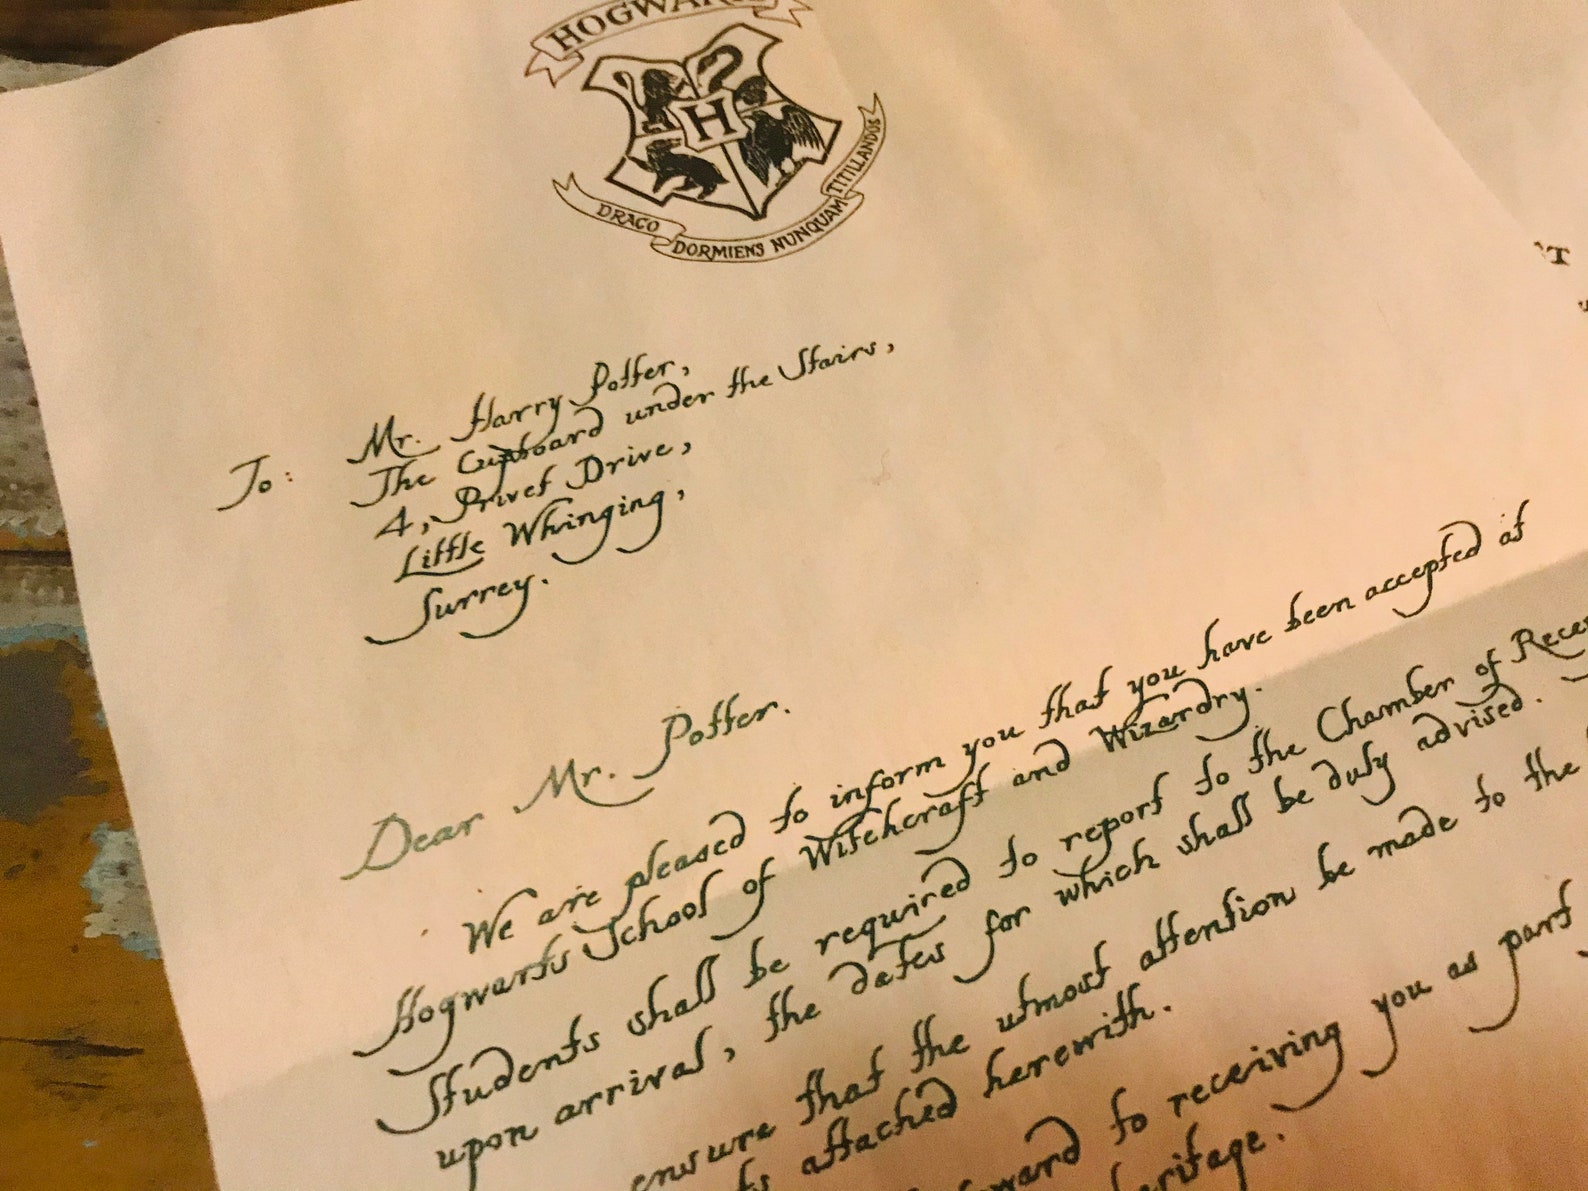 HOGWARTS
DRACO DORMIENS NUNQUAM TITILLANDUS
To: Mr. Harry Potter,
The Cupboard under the Stairs,
4, Privet Drive,
Little Whinging,
Surrey.
Dear Mr. Potter.
We are pleased to inform you that you have been accepted at
Hogwarts School of Witchcraft and Wizardry.
Students shall be required to report to the Chamber of
upon arrival, the dates for which shall be duly advised.
ensure that the utmost attention be made to the
attached herewith.
to receiving you as part
heritage.